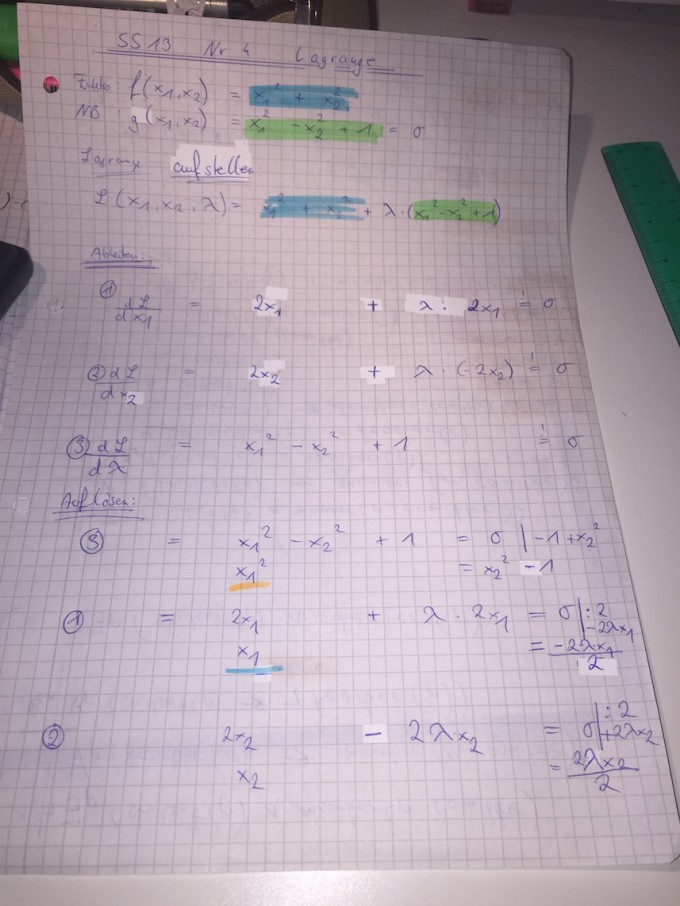 SS 13 Nr 4 Lagrange
f(x₁,x₂) = x₁² + x₂²
NB: g(x₁,x₂) = x₁² - x₂² + 1 = 0
Lagrange aufstellen
L(x₁,x₂,λ) = x₁² + x₂² + λ·(x₁²-x₂²+1)
Ableiten:
① dL/dx₁ = 2x₁ + λ · 2x₁ != 0
② dL/dx₂ = 2x₂ + λ · (-2x₂) != 0
③ dL/dλ = x₁² - x₂² + 1 != 0
Auflösen:
③ = x₁² - x₂² + 1 = 0 | -1 +x₂²
x₁² = x₂² - 1
① = 2x₁ + λ · 2x₁ = 0 | :2 -2λx₁
x₁ = -2λx₁/2
② 2x₂ - 2λx₂ = 0 | :2 +2λx₂
x₂ = 2λx₂/2